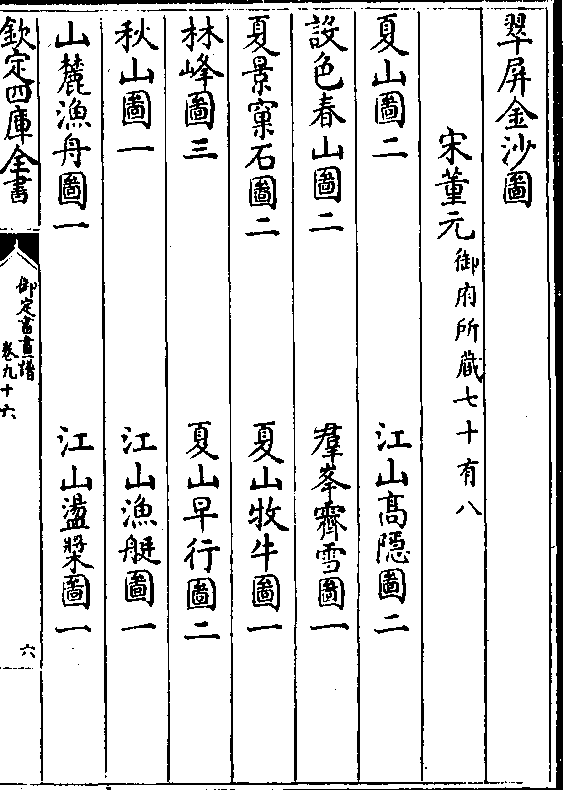 翠屏金沙圖
宋董元御府所藏七十有八
夏山圖二　江山高隱圖二
設色春山圖二　羣峯霽雪圖一
夏景窠石圖二　夏山牧牛圖一
林峰圖三　夏山早行圖二
秋山圖一　江山漁艇圖一
山麓漁舟圖一　江山盪槳圖一
欽定四庫全書
御定書畫譜
卷九十六
六